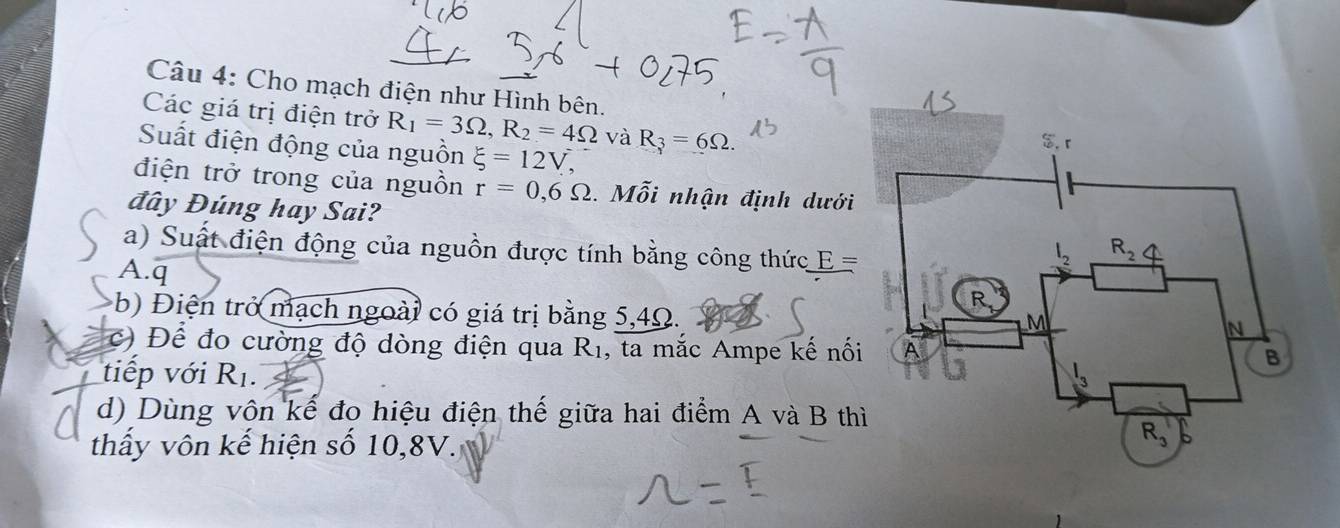 5,6 + 0,75
E = A/q
Câu 4: Cho mạch điện như Hình bên.
Các giá trị điện trở R₁ = 3Ω, R₂ = 4Ω và R₃ = 6Ω.
Suất điện động của nguồn ξ = 12V,
điện trở trong của nguồn r = 0,6 Ω. Mỗi nhận định dưới
đây Đúng hay Sai?
S a) Suất điện động của nguồn được tính bằng công thức E =
A.q
S b) Điện trở mạch ngoài có giá trị bằng 5,4Ω. S
c) Để đo cường độ dòng điện qua R₁, ta mắc Ampe kế nối
tiếp với R₁.
đ d) Dùng vôn kế đo hiệu điện thế giữa hai điểm A và B thì
thấy vôn kế hiện số 10,8V.
r = E
15
ξ, r
I₂ R₂ 4
R₁ 3
I M N
A B
I₃
R₃ 6